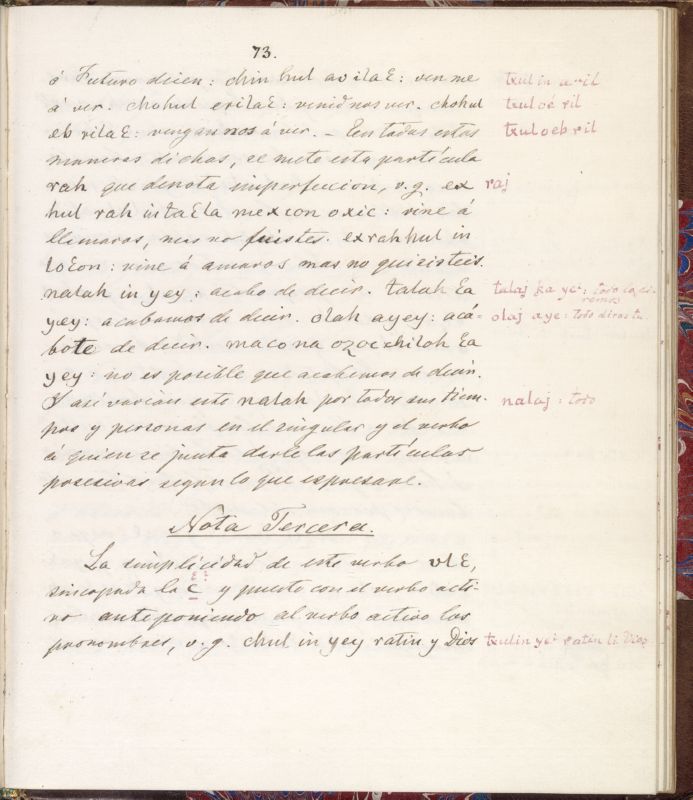 73.
ó Futuro dicen: chin hul avilaƐ: ven me txulin avil
á ver. chohul erilaƐ: venid nos ver. chohul txuloé ril
eb rilaƐ: vengan nos á ver. – En todas estas txuloeb ril
maneras dichas, se mete esta partícula
rah que denota imperfeccion, v.g. ex raj
hul rah in taƐla mexcon oxic: vine á
llamaros, mas no fuistes. exrahhul in
loƐon: vine á amaros mas no quisisteis.
nalah in yey: acabo de decir. talah Ɛa talaj ka ye: todo
yey: acabamos de decir. olah ayey: acá- olaj aye: todo diras tu
bote de decir. maco na ozocchiloh Ɛa
yey: no es posible que acabemos de decir.
Y así varian este nalah por todos sus tiem- nalaj: todo
pos y personas en el singular y el verbo
á quien se junta darle las partículas
posesivas segun lo que espresare.
Nota Tercera.
La simplicidad de este verbo ulƐ,
sincopada la c y puesto con el verbo acti-
vo anteponiendo al verbo activo los
pronombres, v.g. chul in yey ratin y Dios txulin ye ratin li Dios